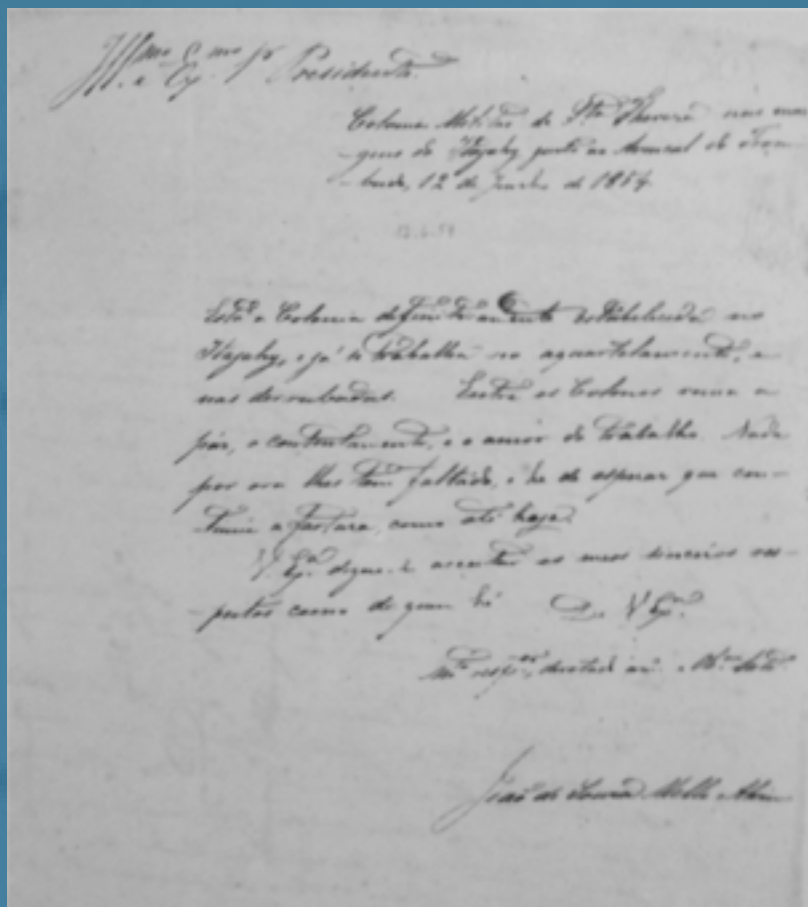 Illmo. e Exmo. Sr. Presidente.
Colonia Militar de Sta. Thereza nas mar-
-gens do Itajahy junto ao Arraial do Trom-
-budo, 12 de Junho de 1854
12.6.54
Está a Colonia definitivamente estabelecida no
Itajahy, e já se trabalha no aquartelamento, e
nas derrubadas. Entre os Colonos reina a
paz, o contentamento, e o amor do trabalho. Nada
por ora lhes tem faltado, e he de esperar que con-
-tinue a fartura, como até hoje.
V. Exa. digne-se acceitar os meus sinceros res-
-peitos como de quem hé De V. Exa.
João de Souza Mello Alvim